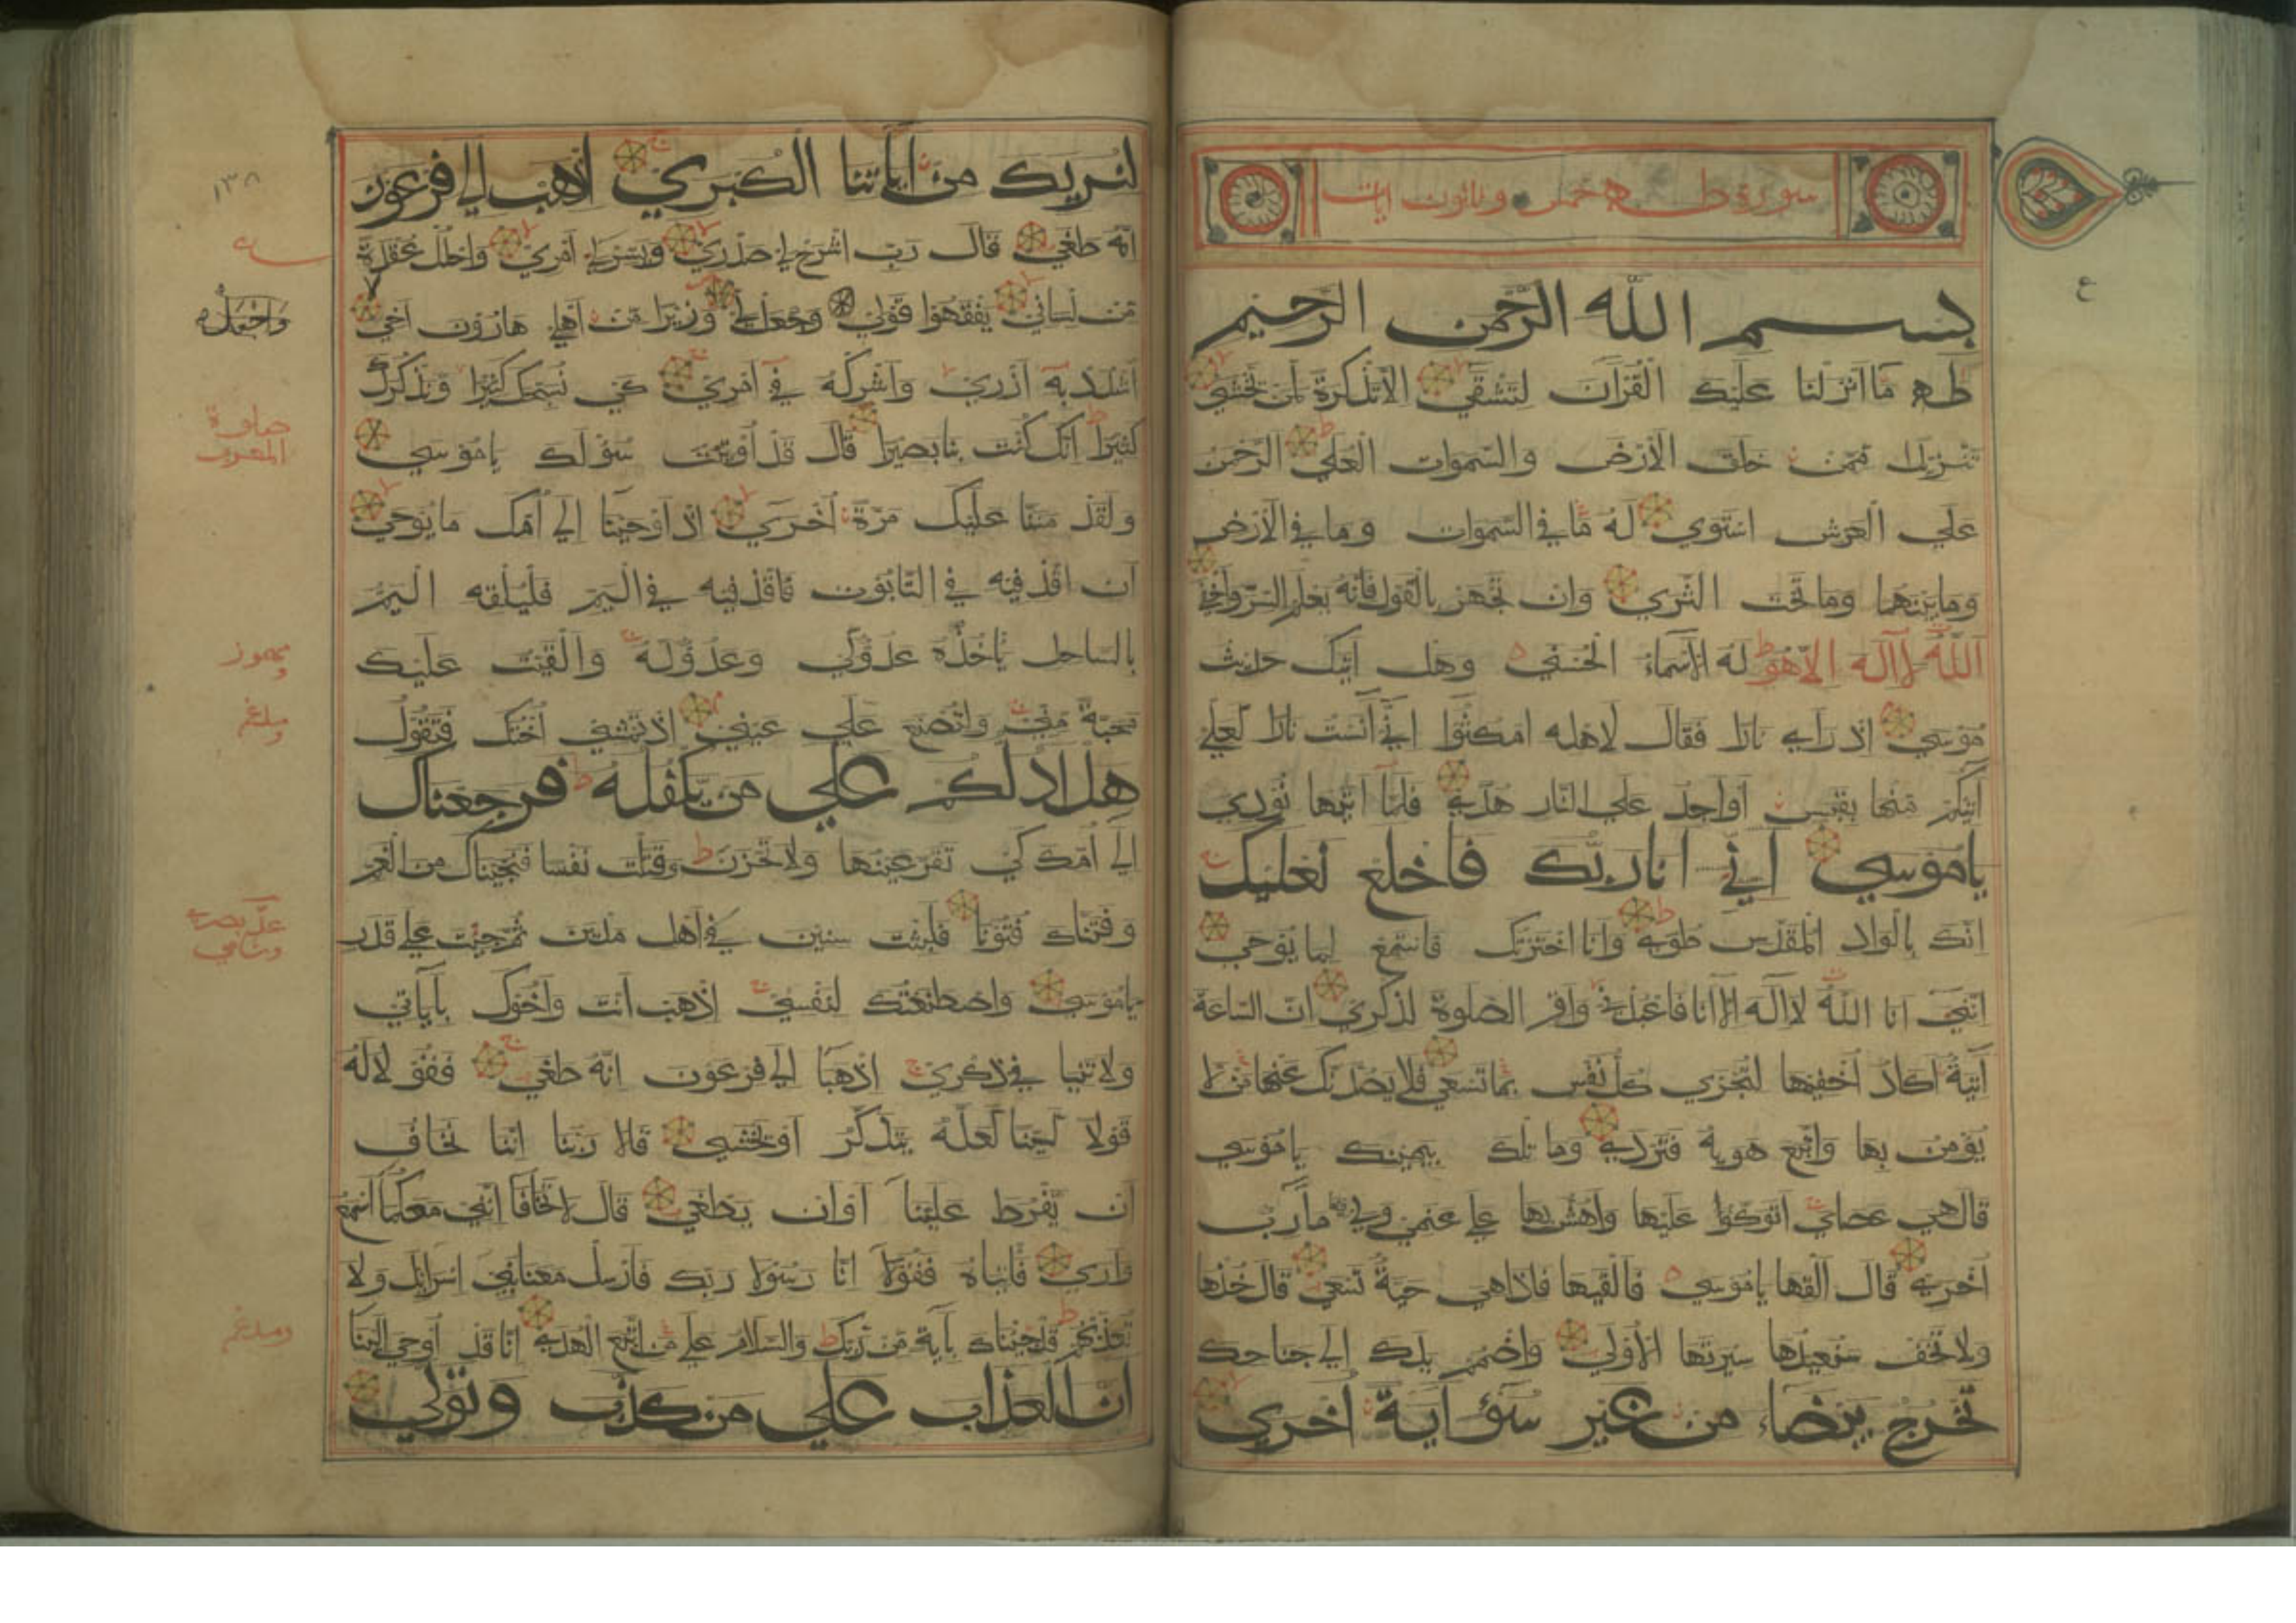 سورة طه خمس وثلثون ايات
ع
بسم الله الرحمن الرحيم
طه ما انزلنا عليك القرآن لتشقي الا تذكرة لمن تخشي
تنزيلا ممن خلق الارض والسموات العلي الرحمن
علي العرش استوي له ما في السموات وما في الارض
وما بينهما وما تحت الثري وان تجهر بالقول فانه يعلم السر واخفي
الله لا اله الا هو له الاسماء الحسني وهل اتيك حديث
موسي اذ راي نارا فقال لاهله امكثوا اني آنست نارا لعلي
آتيكم منها بقبس او اجد علي النار هدي فلما اتيها نودي
ياموسي اني انا ربك فاخلع نعليك
انك بالواد المقدس طوي وانا اخترتك فاستمع لما يوحي
انني انا الله لا اله الا انا فاعبدني واقم الصلوة لذكري ان الساعة
آتية اكاد اخفيها لتجزي كل نفس بما تسعي فلا يصدنك عنها من لا
يؤمن بها واتبع هويه فتردي وما تلك بيمينك ياموسي
قال هي عصاي اتوكؤا عليها واهش بها علي غنمي ولي فيها مآرب
اخري قال القها ياموسي فالقيها فاذا هي حية تسعي قال خذها
ولا تخف سنعيدها سيرتها الاولي واضمم يدك الي جناحك
تخرج بيضاء من غير سوء آية اخري
لنريك من اياتنا الكبري اذهب الي فرعون
انه طغي قال رب اشرح لي صدري ويسر لي امري واحلل عقدة
من لساني يفقهوا قولي وجعل لي وزيرا من اهلي هارون اخي
اشدد به ازري واشركه في امري كي نسبحك كثيرا ونذكرك
كثيرا انك كنت بنا بصيرا قال قد اوتيت سؤلك ياموسي
ولقد مننا عليك مرة اخري اذ اوحينا الي امك ما يوحي
ان اقذفيه في التابوت فاقذفيه في اليم فليلقه اليم
بالساحل يأخذه عدو لي وعدو له والقيت عليك
محبة مني ولتصنع علي عيني اذ تمشي اختك فتقول
هل ادلكم علي من يكفله فرجعناك
الي امك كي تقر عينها ولا تحزن وقتلت نفسا فنجيناك من الغم
وفتناك فتونا فلبثت سنين في اهل مدين ثم جئت علي قدر
ياموسي واصطنعتك لنفسي اذهب انت واخوك بآياتي
ولا تنيا في ذكري اذهبا الي فرعون انه طغي فقولا له
قولا لينا لعله يتذكر او يخشي قالا ربنا اننا نخاف
ان يفرط علينا او ان يطغي قال لا تخافا انني معكما اسمع
واري فأتياه فقولا انا رسولا ربك فارسل معنا بني اسرائل ولا
تعذبهم قد جئناك بآية من ربك والسلام علي من اتبع الهدي انا قد اوحي الينا
ان العذاب علي من كذب وتولي
١٣٨
واجعل